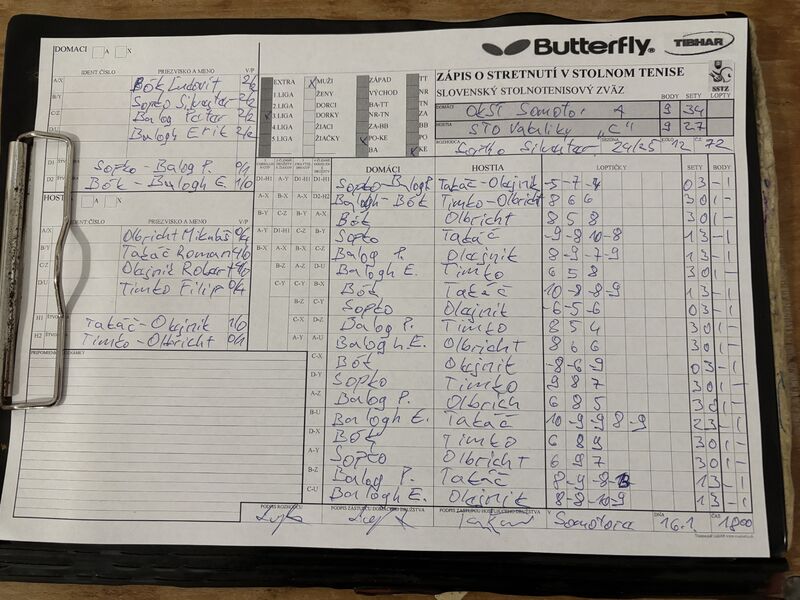 Butterfly. TIBHAR
ZÁPIS O STRETNUTÍ V STOLNOM TENISE
SLOVENSKÝ STOLNOTENISOVÝ ZVÄZ
SSTZ
BODY SETY LOPTY
DOMÁCI OKST Somotor A 9 34
HOSTIA STO Vat "C" 9 27
ROZHODCA Sopko Silvester SEZÓNA 24/25 KOLO 12 Č. 72
DOMACI A X
IDENT ČÍSLO PRIEZVISKO A MENO V/P
A/X Bók Ľudovít 2/2
B/Y Sopko Silvester 2/2
C/Z Balog Peter 2/2
D/U Balogh Erik 2/2
D1 Sopko - Balog P. 0/1
D2 Bók - Balogh E. 1/0
EXTRA X MUŽI ZÁPAD TT
1.LIGA ŽENY VÝCHOD NR
2.LIGA DORCI BA-TT TN
3.LIGA DORKY NR-TN ZA
4.LIGA ŽIACI ZA-BB BB
5.LIGA ŽIAČKY PO-KE PO
BA KE
HOSTIA A X
IDENT ČÍSLO PRIEZVISKO A MENO V/P
A/X Olbricht Mikuláš 0/4
B/Y Takáč Roman 4/0
C/Z Olejnik Robert 4/0
D/U Timko Filip 0/4
H1 Takáč - Olejnik 1/0
H2 Timko - Olbricht 0/1
PRIPOMIENKY
DOMÁCI HOSTIA LOPTIČKY SETY BODY
Sopko-Balog P. Takáč-Olejnik -5 -7 -4 0 3 - 1
Balogh-Bók Timko-Olbricht 8 6 6 3 0 1 -
Bók Olbricht 8 5 8 3 0 1 -
Sopko Takáč -9 -8 10 -8 1 3 - 1
Balog P. Olejnik -8 -9 7 -9 1 3 - 1
Balogh E. Timko 6 5 8 3 0 1 -
Bók Takáč 10 -8 -8 -9 1 3 - 1
Sopko Olejnik -6 -5 -6 0 3 - 1
Balog P. Timko 8 5 4 3 0 1 -
Balogh E. Olbricht 8 6 6 3 0 1 -
Bók Olejnik -8 -6 -9 0 3 - 1
Sopko Timko 9 8 7 3 0 1 -
Balog P. Olbrich 6 8 5 3 0 1 -
Balogh E. Takáč 10 -9 -9 8 -9 2 3 - 1
Bók Timko 6 8 9 3 0 1 -
Sopko Olbricht 6 9 7 3 0 1 -
Balog P. Takáč 8 -9 -8 1 3 - 1
Balogh E. Olejnik 8 -8 -10 -9 1 3 - 1
PODPIS ROZHODCU
PODPIS ZÁSTUPCU DOMÁCEHO DRUŽSTVA
PODPIS ZÁSTUPCU HOSŤUJÚCEHO DRUŽSTVA
V Somotore DŇA 16.1 ČAS 18:00